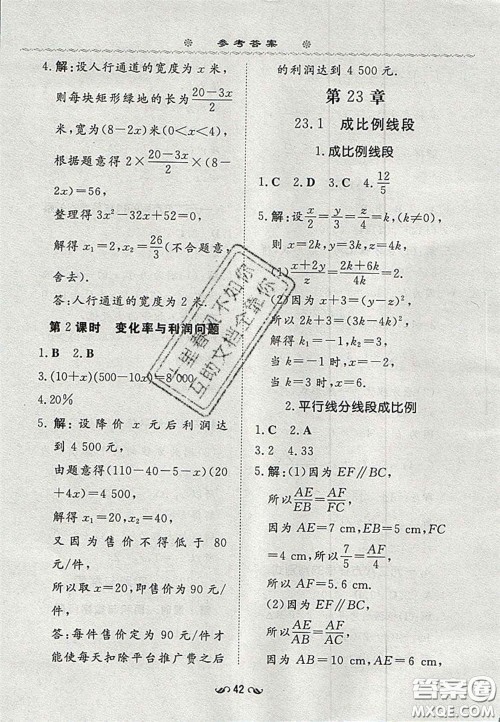 参考答案
4.解:设人行通道的宽度为x米,
则每块矩形绿地的长为(20-3x)/3
米,宽为(8-2x)米(0<x<4).
根据题意得2×(20-3x)/3×(8-
2x)=56,
整理得3x²-32x+52=0,
解得x₁=2,x₂=26/3(不合题意,
舍去).
答:人行通道的宽度为2米.
第2课时 变化率与利润问题
1.B 2.B
3.(10+x)(500-10x)=8 000
4.20%
5.解:设降价x元后利润达
到4 500元,
由题意得(110-40-5-x)(20
+4x)=4 500,
解得x₁=20,x₂=40,
又因为售价不得低于80
元/件,
所以取x=20,即售价为90
元/件,
答:每件售价定为90元/件才
能使每天扣除平台推广费之后
的利润达到4 500元.
第23章
23.1 成比例线段
1.成比例线段
1.C 2.A 3.C 4.12/5
5.解:设x/2=y/3=z/4=k,(k≠0),
则x=2k,y=3k,z=4k,
(1)(x+2y)/z=(2k+6k)/4k=2.
(2)因为x+3=(y-z)²,
所以2k+3=(3k-4k)²,
解得k=3或k=-1.
2.平行线分线段成比例
1.C 2.A
3.2 4.33
5.解:(1)因为EF∥BC,
所以AE/EB=AF/FC.
因为AE=7 cm,EB=5 cm,FC
=4 cm,所以7/5=AF/4,
所以AF=5.6 cm.
(2)因为EF∥BC,
所以AE/AB=AF/AC.
因为AB=10 cm,AE=6 cm,
42
作业有不如你
互助文档全靠你
答案圈
MXQE.COM